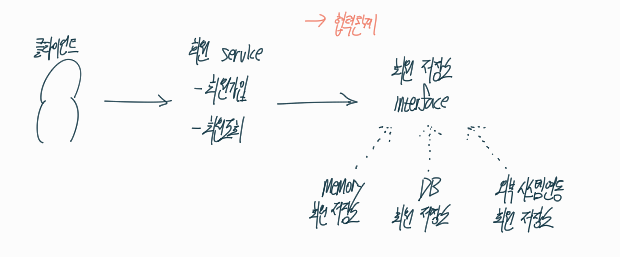 → 협력관계
클라이언트
회원 service
- 회원가입
- 회원조회
회원 저장소
interface
memory
회원 저장소
DB
회원 저장소
외부 시스템연동
회원 저장소